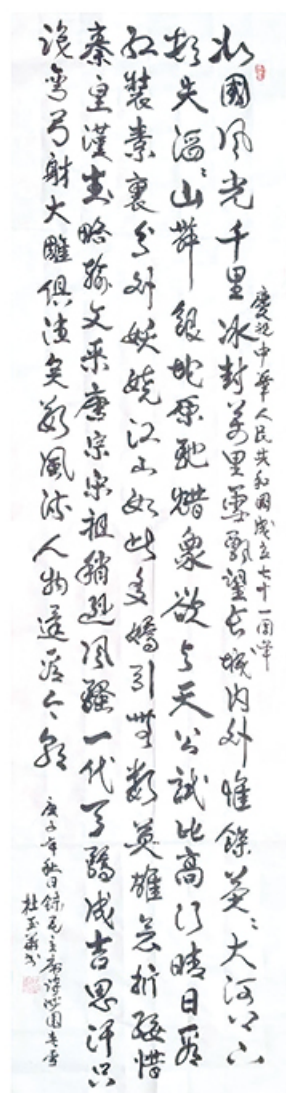 慶祝中華人民共和國成立七十一周年
北國風光千里冰封萬里雪飄望長城內外惟餘莽〻大河上下
頓失滔〻山舞銀蛇原馳蜡象欲与天公試比高須晴日看
紅裝素裹分外妖嬈江山如此多嬌引無數英雄競折腰惜
秦皇漢武略輸文采唐宗宋祖稍遜風騷一代天驕成吉思汗只
識彎弓射大雕俱往矣數風流人物還看今朝
庚子年秋日錄毛主席詩沁園春雪
杜玉書